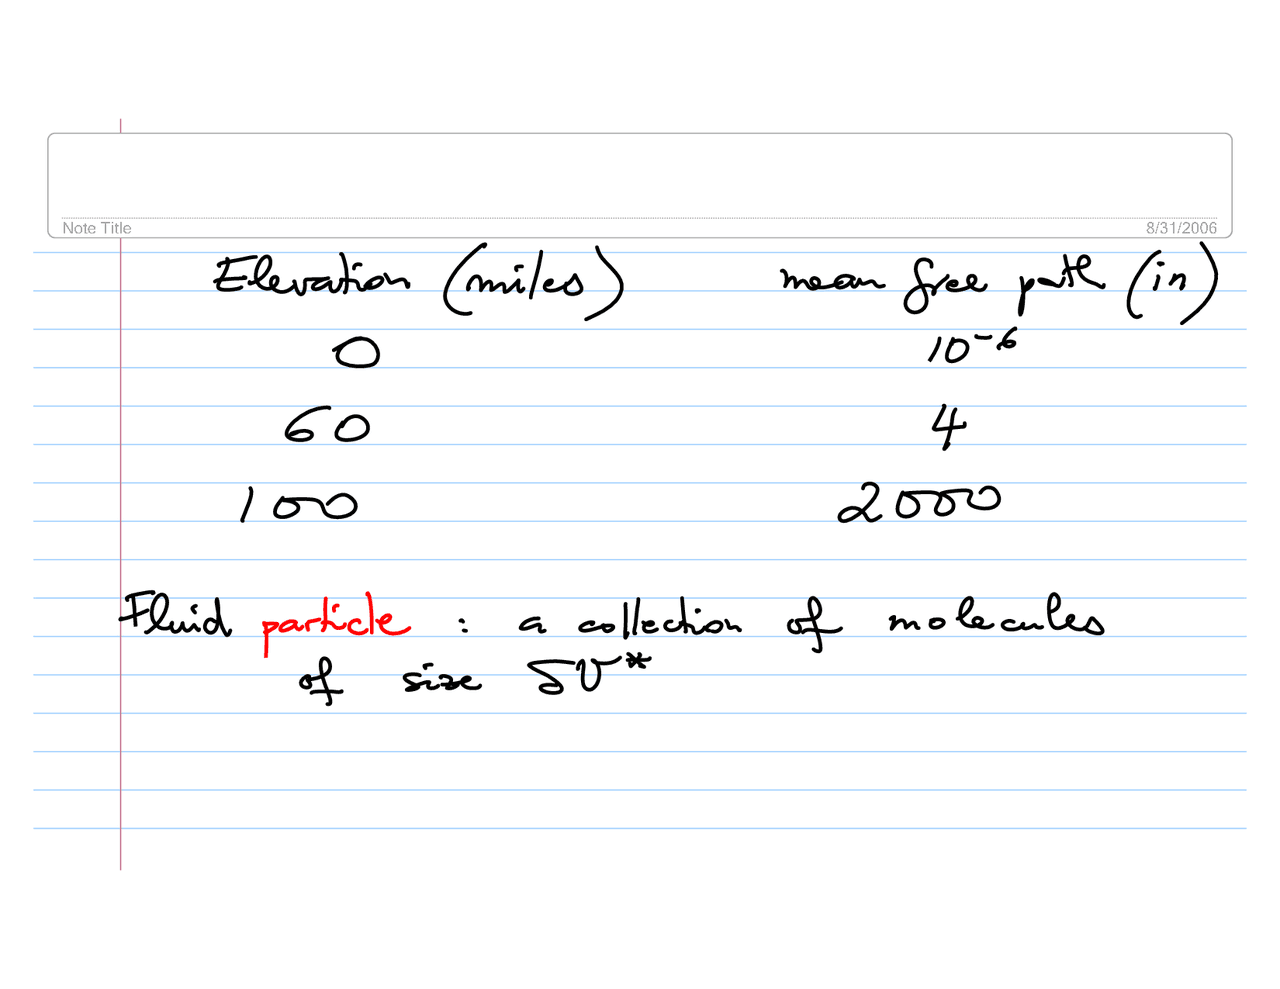 Note Title
8/31/2006
Elevation (miles) mean free path (in)
0 10⁻⁶
60 4
100 2000
Fluid particle : a collection of molecules
of size δV*